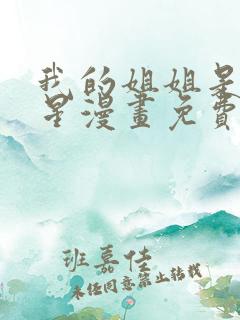 我的姐姐是
星漫畫免費
班嘉佳
未任同意禁止转载